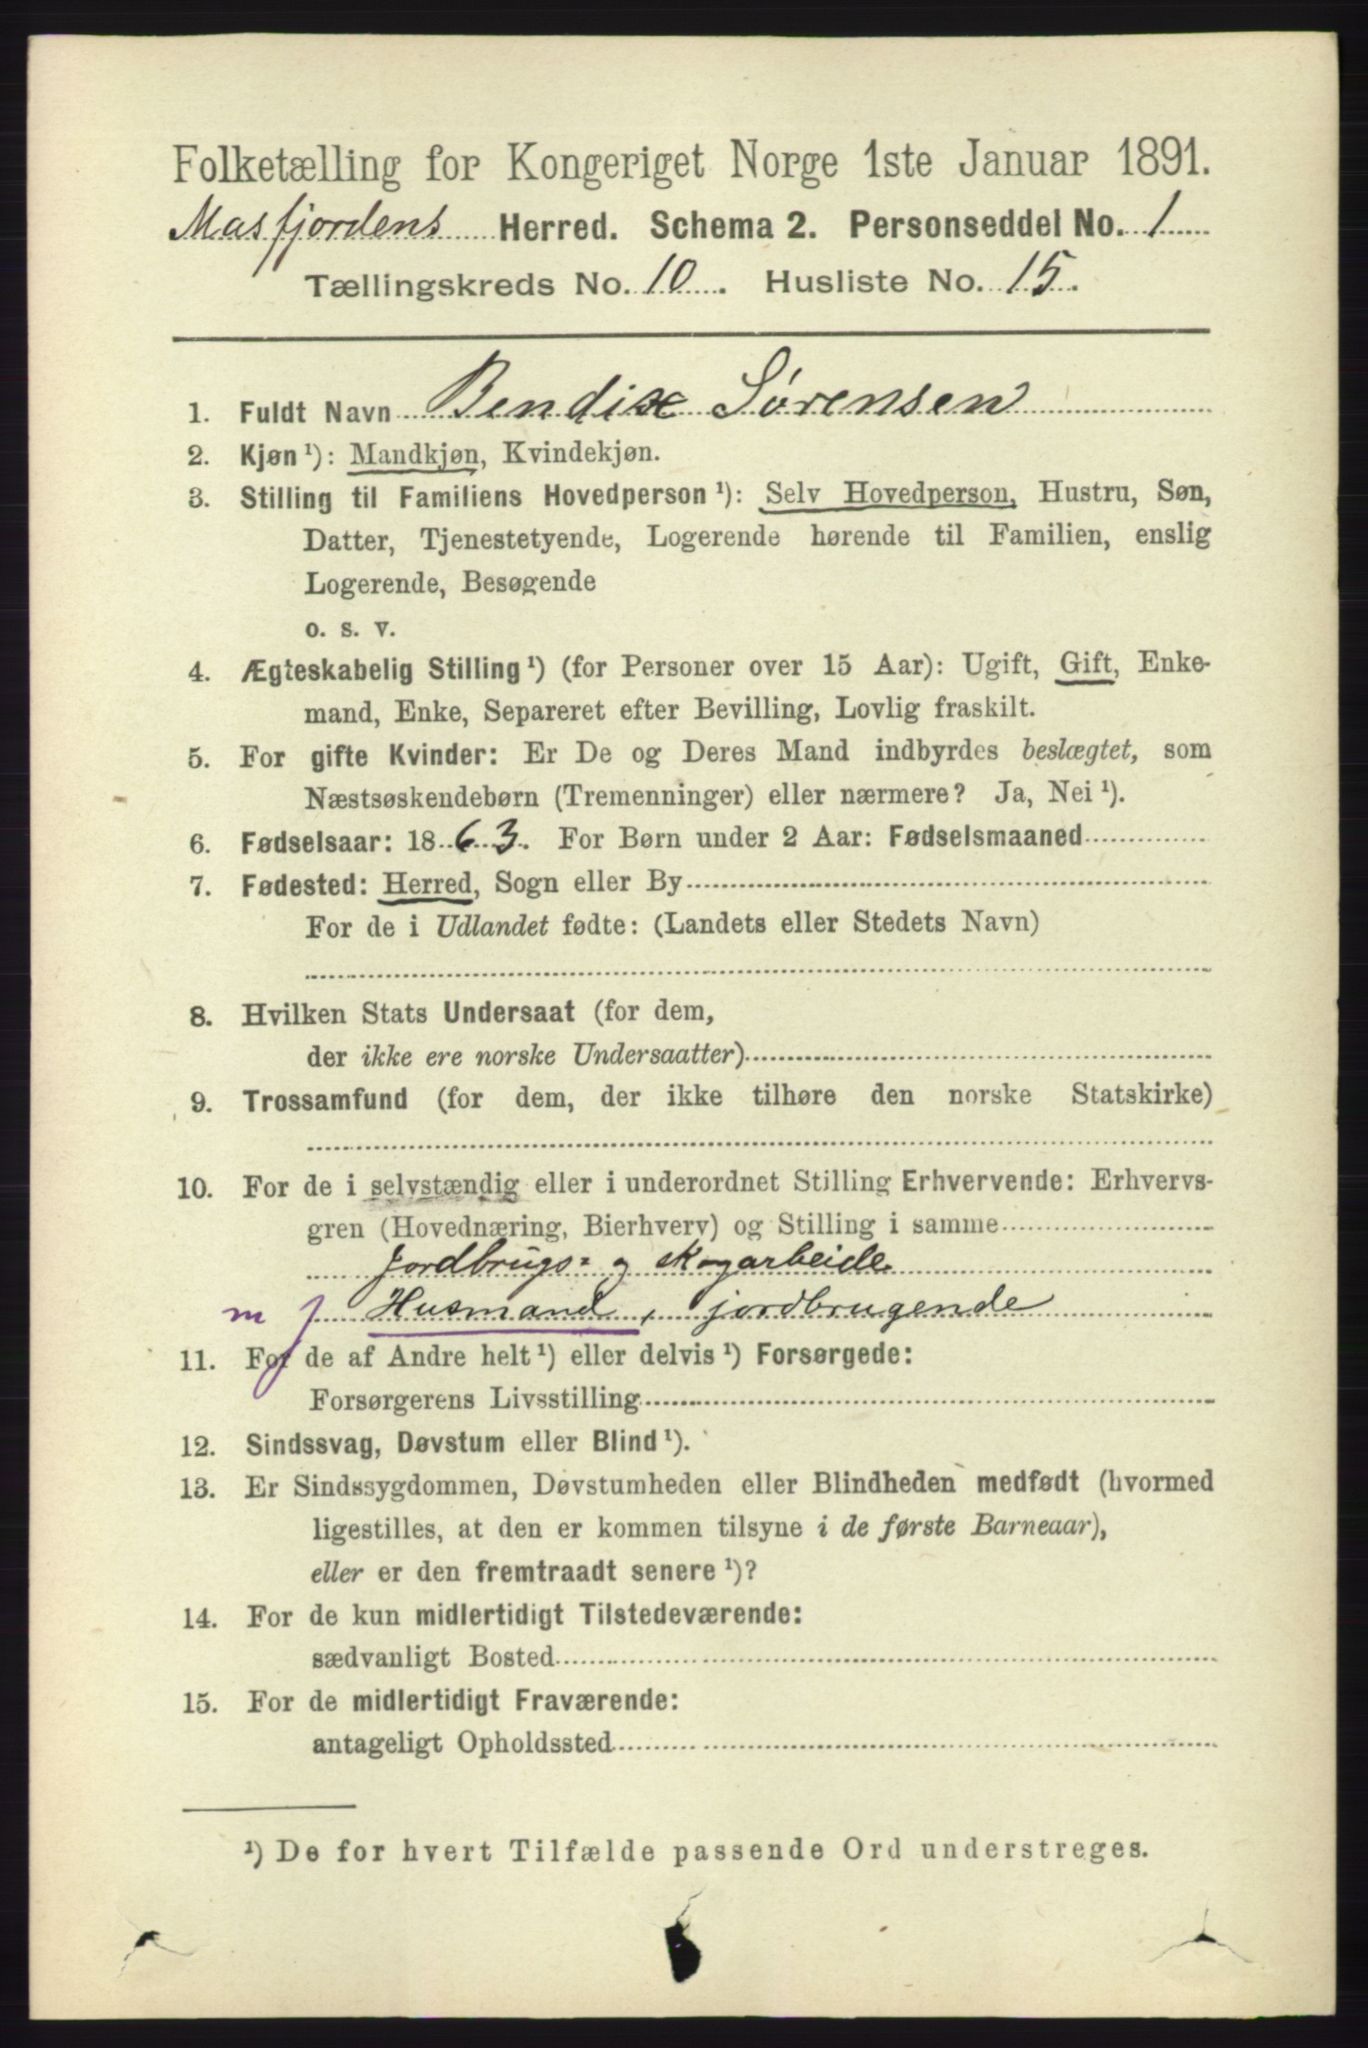 Folketælling for Kongeriget Norge 1ste Januar 1891.
Masfjordens Herred. Schema 2. Personseddel No. 1
Tællingskreds No. 10. Husliste No. 15.
1. Fuldt Navn Bendix Sørensen
2. Kjøn ¹): Mandkjøn, Kvindekjøn.
3. Stilling til Familiens Hovedperson ¹): Selv Hovedperson, Hustru, Søn,
Datter, Tjenestetyende, Logerende hørende til Familien, enslig
Logerende, Besøgende
o. s. v.
4. Ægteskabelig Stilling ¹) (for Personer over 15 Aar): Ugift, Gift, Enke-
mand, Enke, Separeret efter Bevilling, Lovlig fraskilt.
5. For gifte Kvinder: Er De og Deres Mand indbyrdes beslægtet, som
Næstsøskendebørn (Tremenninger) eller nærmere? Ja, Nei ¹).
6. Fødselsaar: 1863. For Børn under 2 Aar: Fødselsmaaned
7. Fødested: Herred, Sogn eller By
For de i Udlandet fødte: (Landets eller Stedets Navn)
8. Hvilken Stats Undersaat (for dem,
der ikke ere norske Undersaatter)
9. Trossamfund (for dem, der ikke tilhøre den norske Statskirke)
10. For de i selvstændig eller i underordnet Stilling Erhvervende: Erhvervs-
gren (Hovednæring, Bierhverv) og Stilling i samme
Jordbrugs- og skogarbeide
m j Husmand, jordbrugende
11. For de af Andre helt ¹) eller delvis ¹) Forsørgede:
Forsørgerens Livsstilling
12. Sindssvag, Døvstum eller Blind ¹).
13. Er Sindssygdommen, Døvstumheden eller Blindheden medfødt (hvormed
ligestilles, at den er kommen tilsyne i de første Barneaar),
eller er den fremtraadt senere ¹)?
14. For de kun midlertidigt Tilstedeværende:
sædvanligt Bosted
15. For de midlertidigt Fraværende:
antageligt Opholdssted
¹) De for hvert Tilfælde passende Ord understreges.